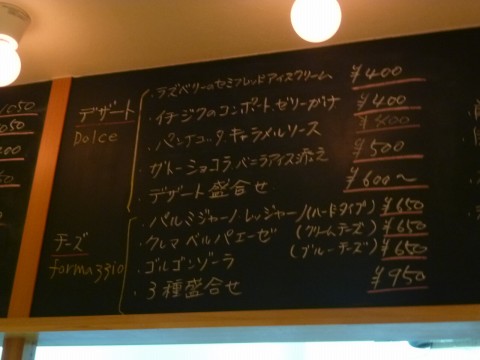 デザート
Dolce
・ラズベリーのセミフレッドアイスクリーム ¥400
・イチジクのコンポート ゼリーがけ ¥400
・パンナコッタ キャラメルソース ¥400
・ガトーショコラ バニラアイス添え ¥500
・デザート盛合せ ¥600〜
チーズ
formaggio
・パルミジャーノ レッジャーノ(ハードタイプ) ¥650
・クレマ ベル パエーゼ (クリームチーズ) ¥650
・ゴルゴンゾーラ (ブルーチーズ) ¥650
・3種盛合せ ¥950
1050